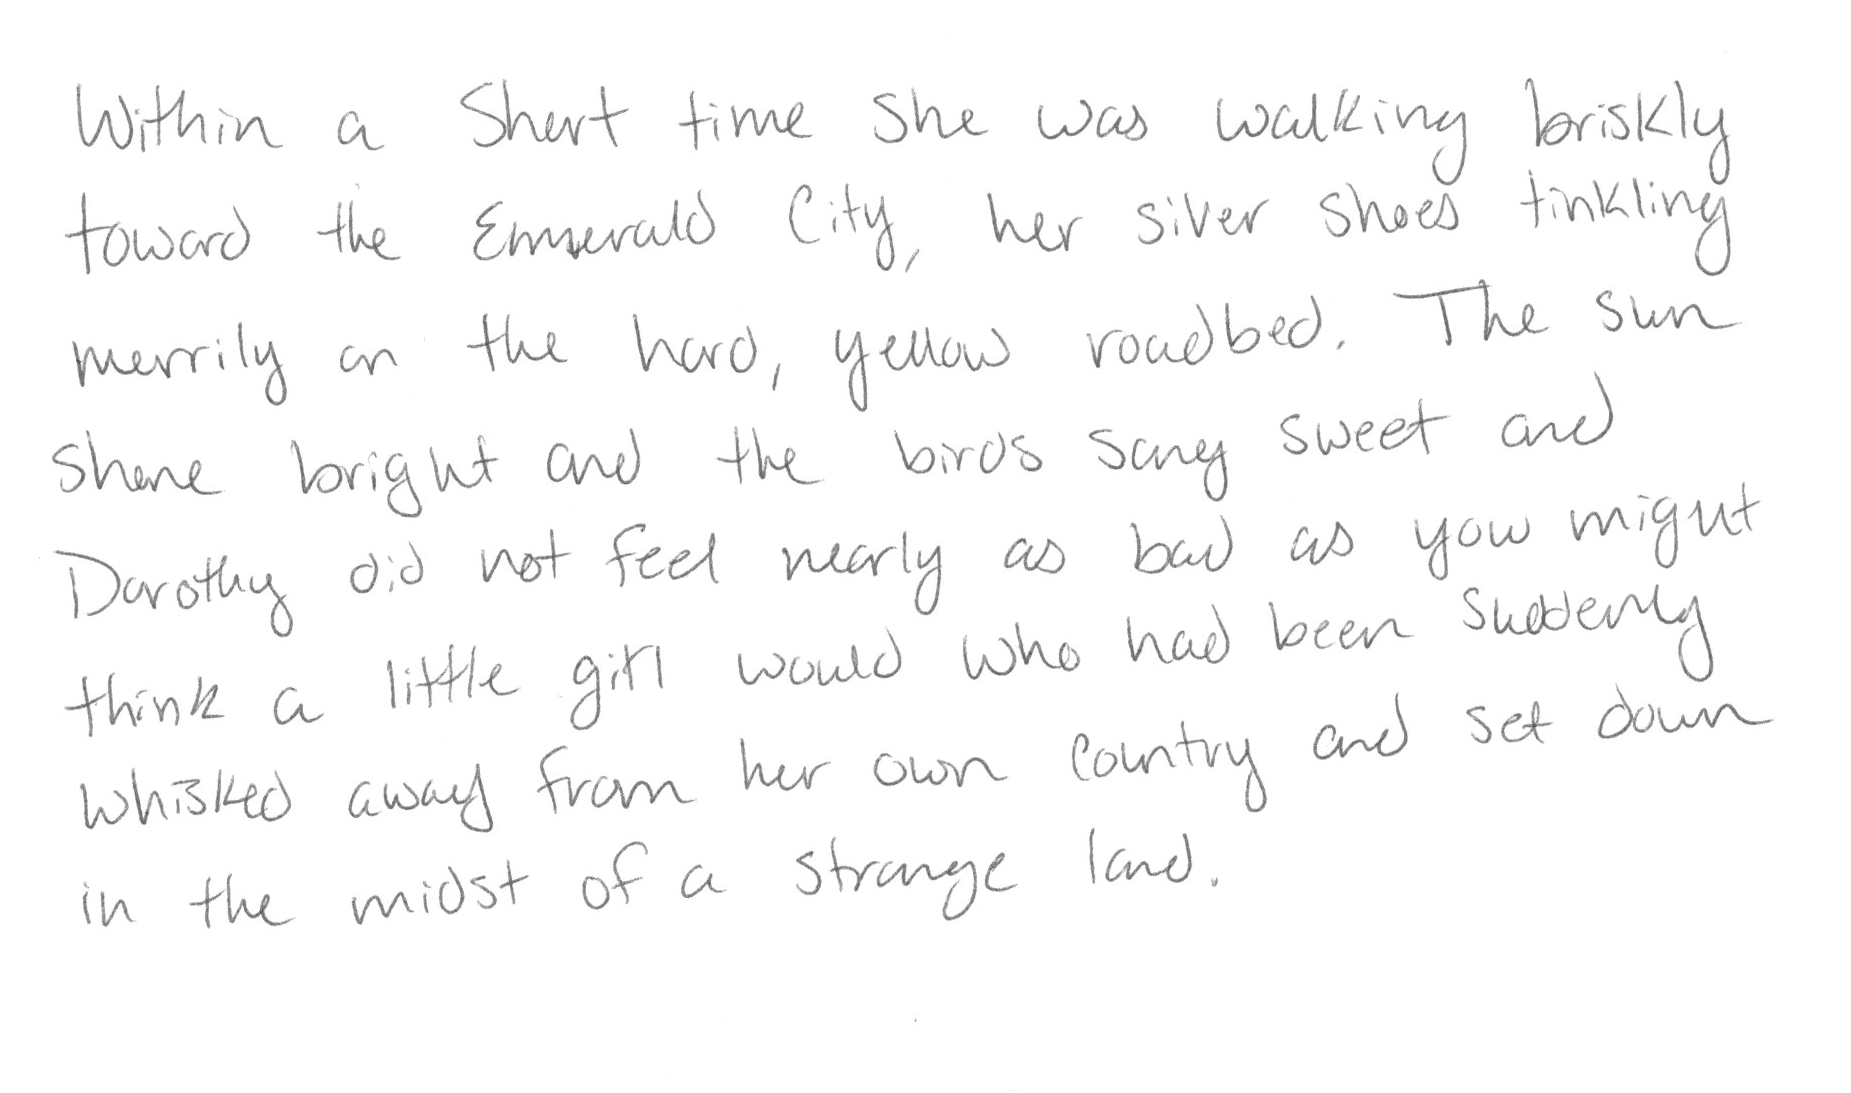 Within a Short time She was walking briskly
toward the Emerald City, her silver shoes tinkling
merrily on the hard, yellow roadbed. The sun
shone bright and the birds sang sweet and
Dorothy did not feel nearly as bad as you might
think a little girl would who had been suddenly
whisked away from her own country and set down
in the midst of a strange land.